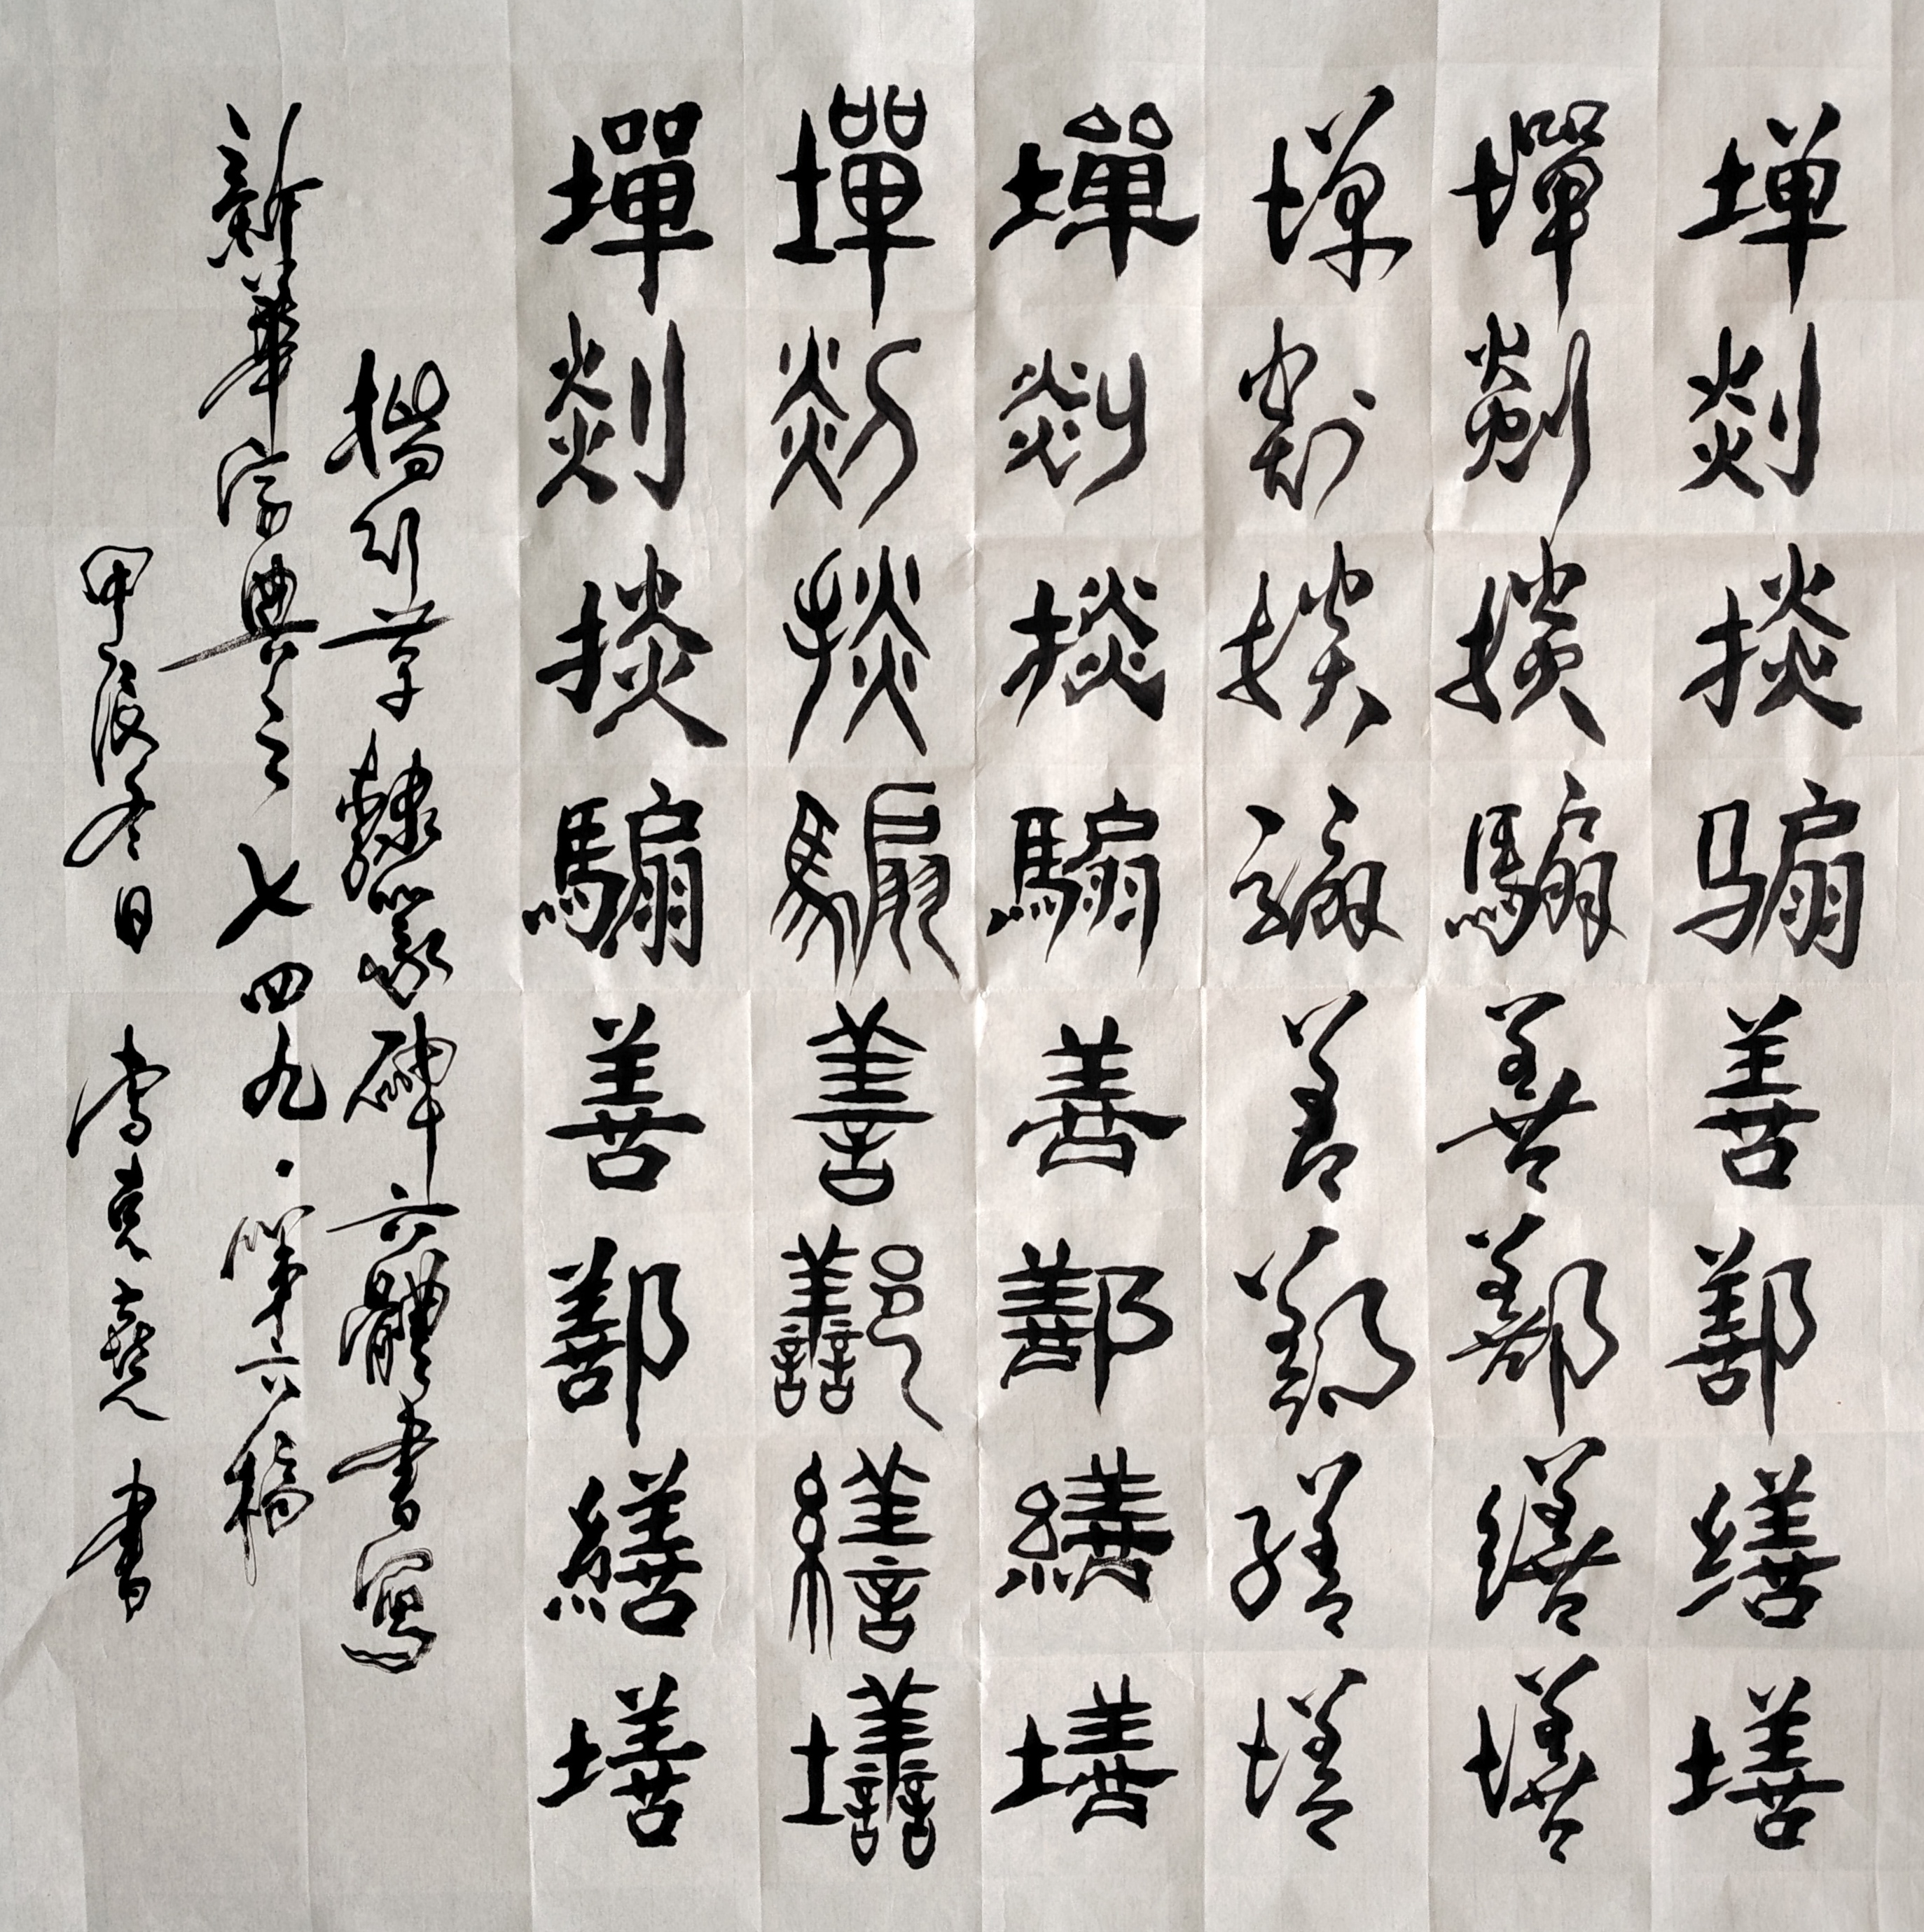 墠剡掞骟善鄯缮墡
墠剡掞騸善鄯繕墡
墠剡掞騸善鄯繕墡
墠剡掞騸善鄯繕墡
墠剡掞騸善鄯繕墡
墠剡掞騸善鄯繕墡
楷行草隸篆碑六體書寫
新華字典之七四九·第六稿
甲辰冬日 克堯書